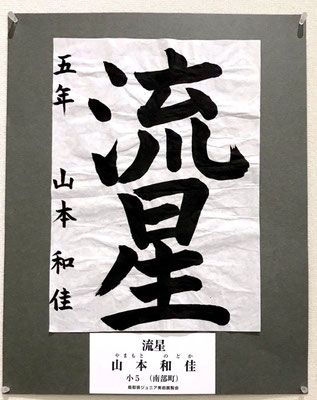 流星
五年 山本和佳
流星
やまもと のどか
山本和佳
小5 (南部町)
鳥取県ジュニア美術展覧会